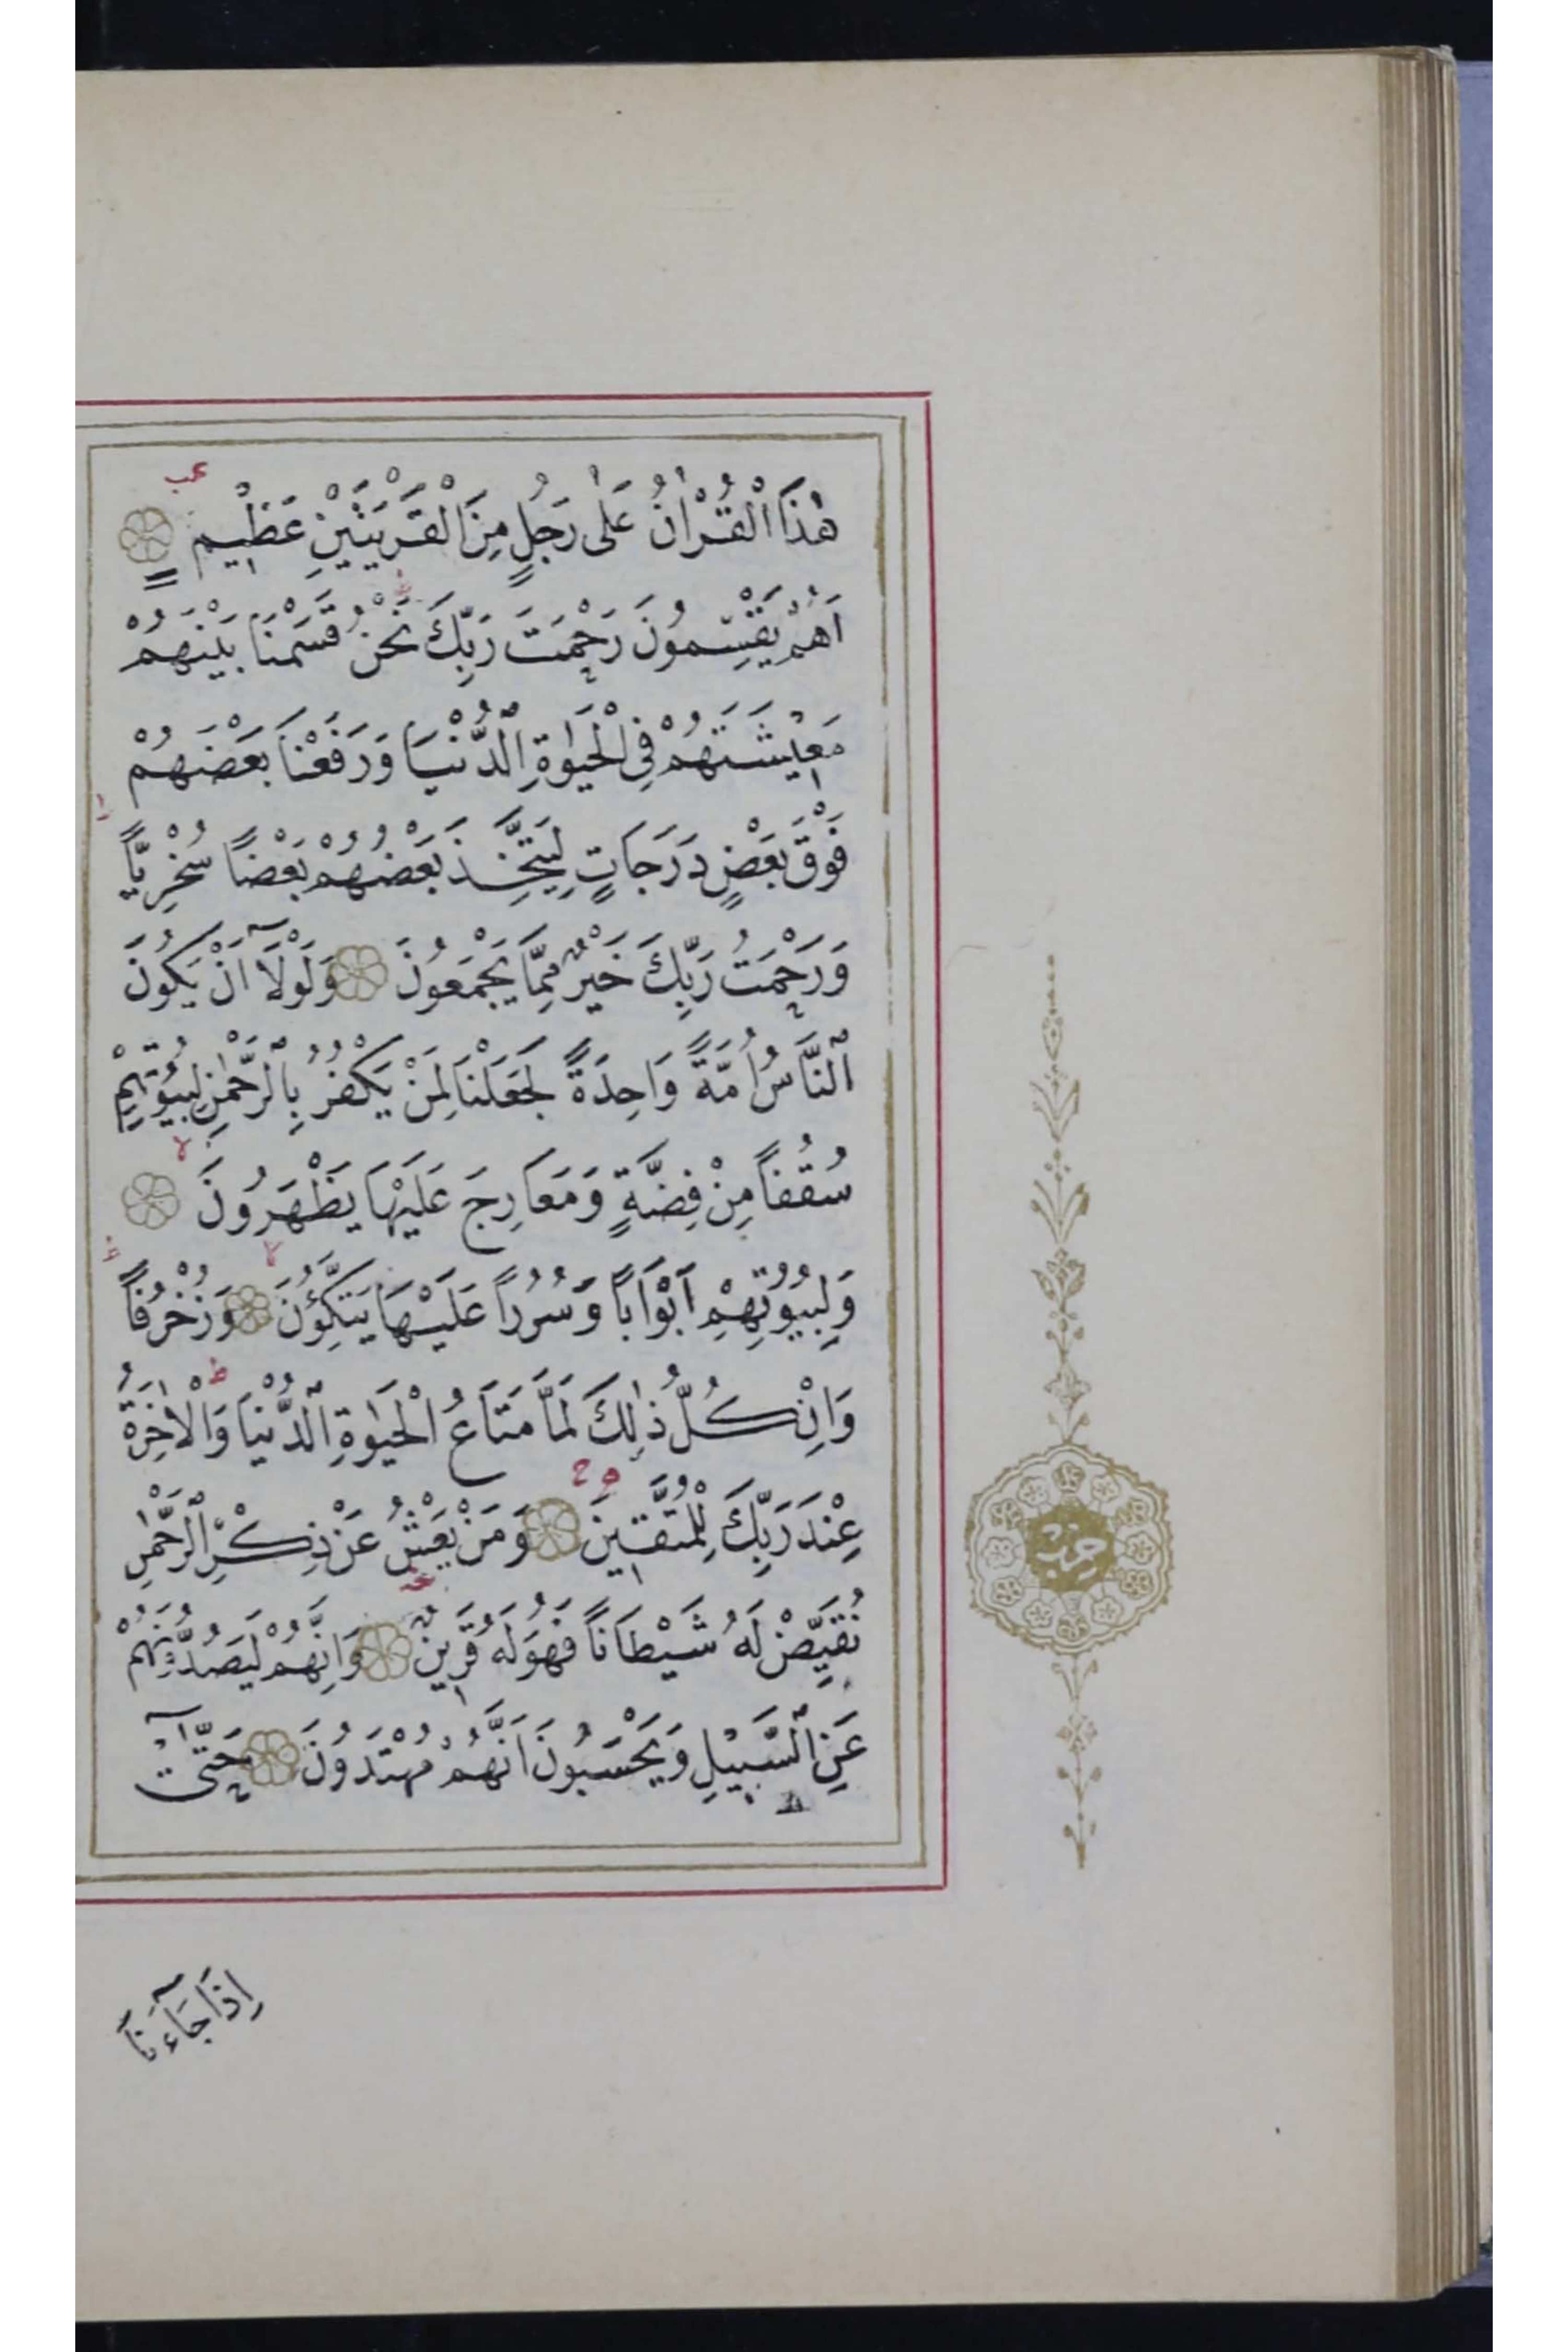 هٰذَا الْقُرْاٰنُ عَلٰى رَجُلٍ مِنَ الْقَرْيَتَيْنِ عَظِيمٍ
اَهُمْ يَقْسِمُونَ رَحْمَتَ رَبِّكَ نَحْنُ قَسَمْنَا بَيْنَهُمْ
مَعِيشَتَهُمْ فِى الْحَيٰوةِ الدُّنْيَا وَرَفَعْنَا بَعْضَهُمْ
فَوْقَ بَعْضٍ دَرَجَاتٍ لِيَتَّخِذَ بَعْضُهُمْ بَعْضًا سُخْرِيًّا
وَرَحْمَتُ رَبِّكَ خَيْرٌ مِمَّا يَجْمَعُونَ وَلَوْلَآ اَنْ يَكُونَ
النَّاسُ اُمَّةً وَاحِدَةً لَجَعَلْنَا لِمَنْ يَكْفُرُ بِالرَّحْمٰنِ لِبُيُوتِهِمْ
سُقُفًا مِنْ فِضَّةٍ وَمَعَارِجَ عَلَيْهَا يَظْهَرُونَ
وَلِبُيُوتِهِمْ اَبْوَابًا وَسُرُرًا عَلَيْهَا يَتَّكِؤُنَ وَزُخْرُفًا
وَاِنْ كُلُّ ذٰلِكَ لَمَّا مَتَاعُ الْحَيٰوةِ الدُّنْيَا وَالْاٰخِرَةُ
عِنْدَ رَبِّكَ لِلْمُتَّقِينَ وَمَنْ يَعْشُ عَنْ ذِكْرِ الرَّحْمٰنِ
نُقَيِّضْ لَهُ شَيْطَانًا فَهُوَ لَهُ قَرِينٌ وَاِنَّهُمْ لَيَصُدُّونَهُمْ
عَنِ السَّبِيلِ وَيَحْسَبُونَ اَنَّهُمْ مُهْتَدُونَ حَتّٰىٓ
حزب
اِذَا جَآءَنَا